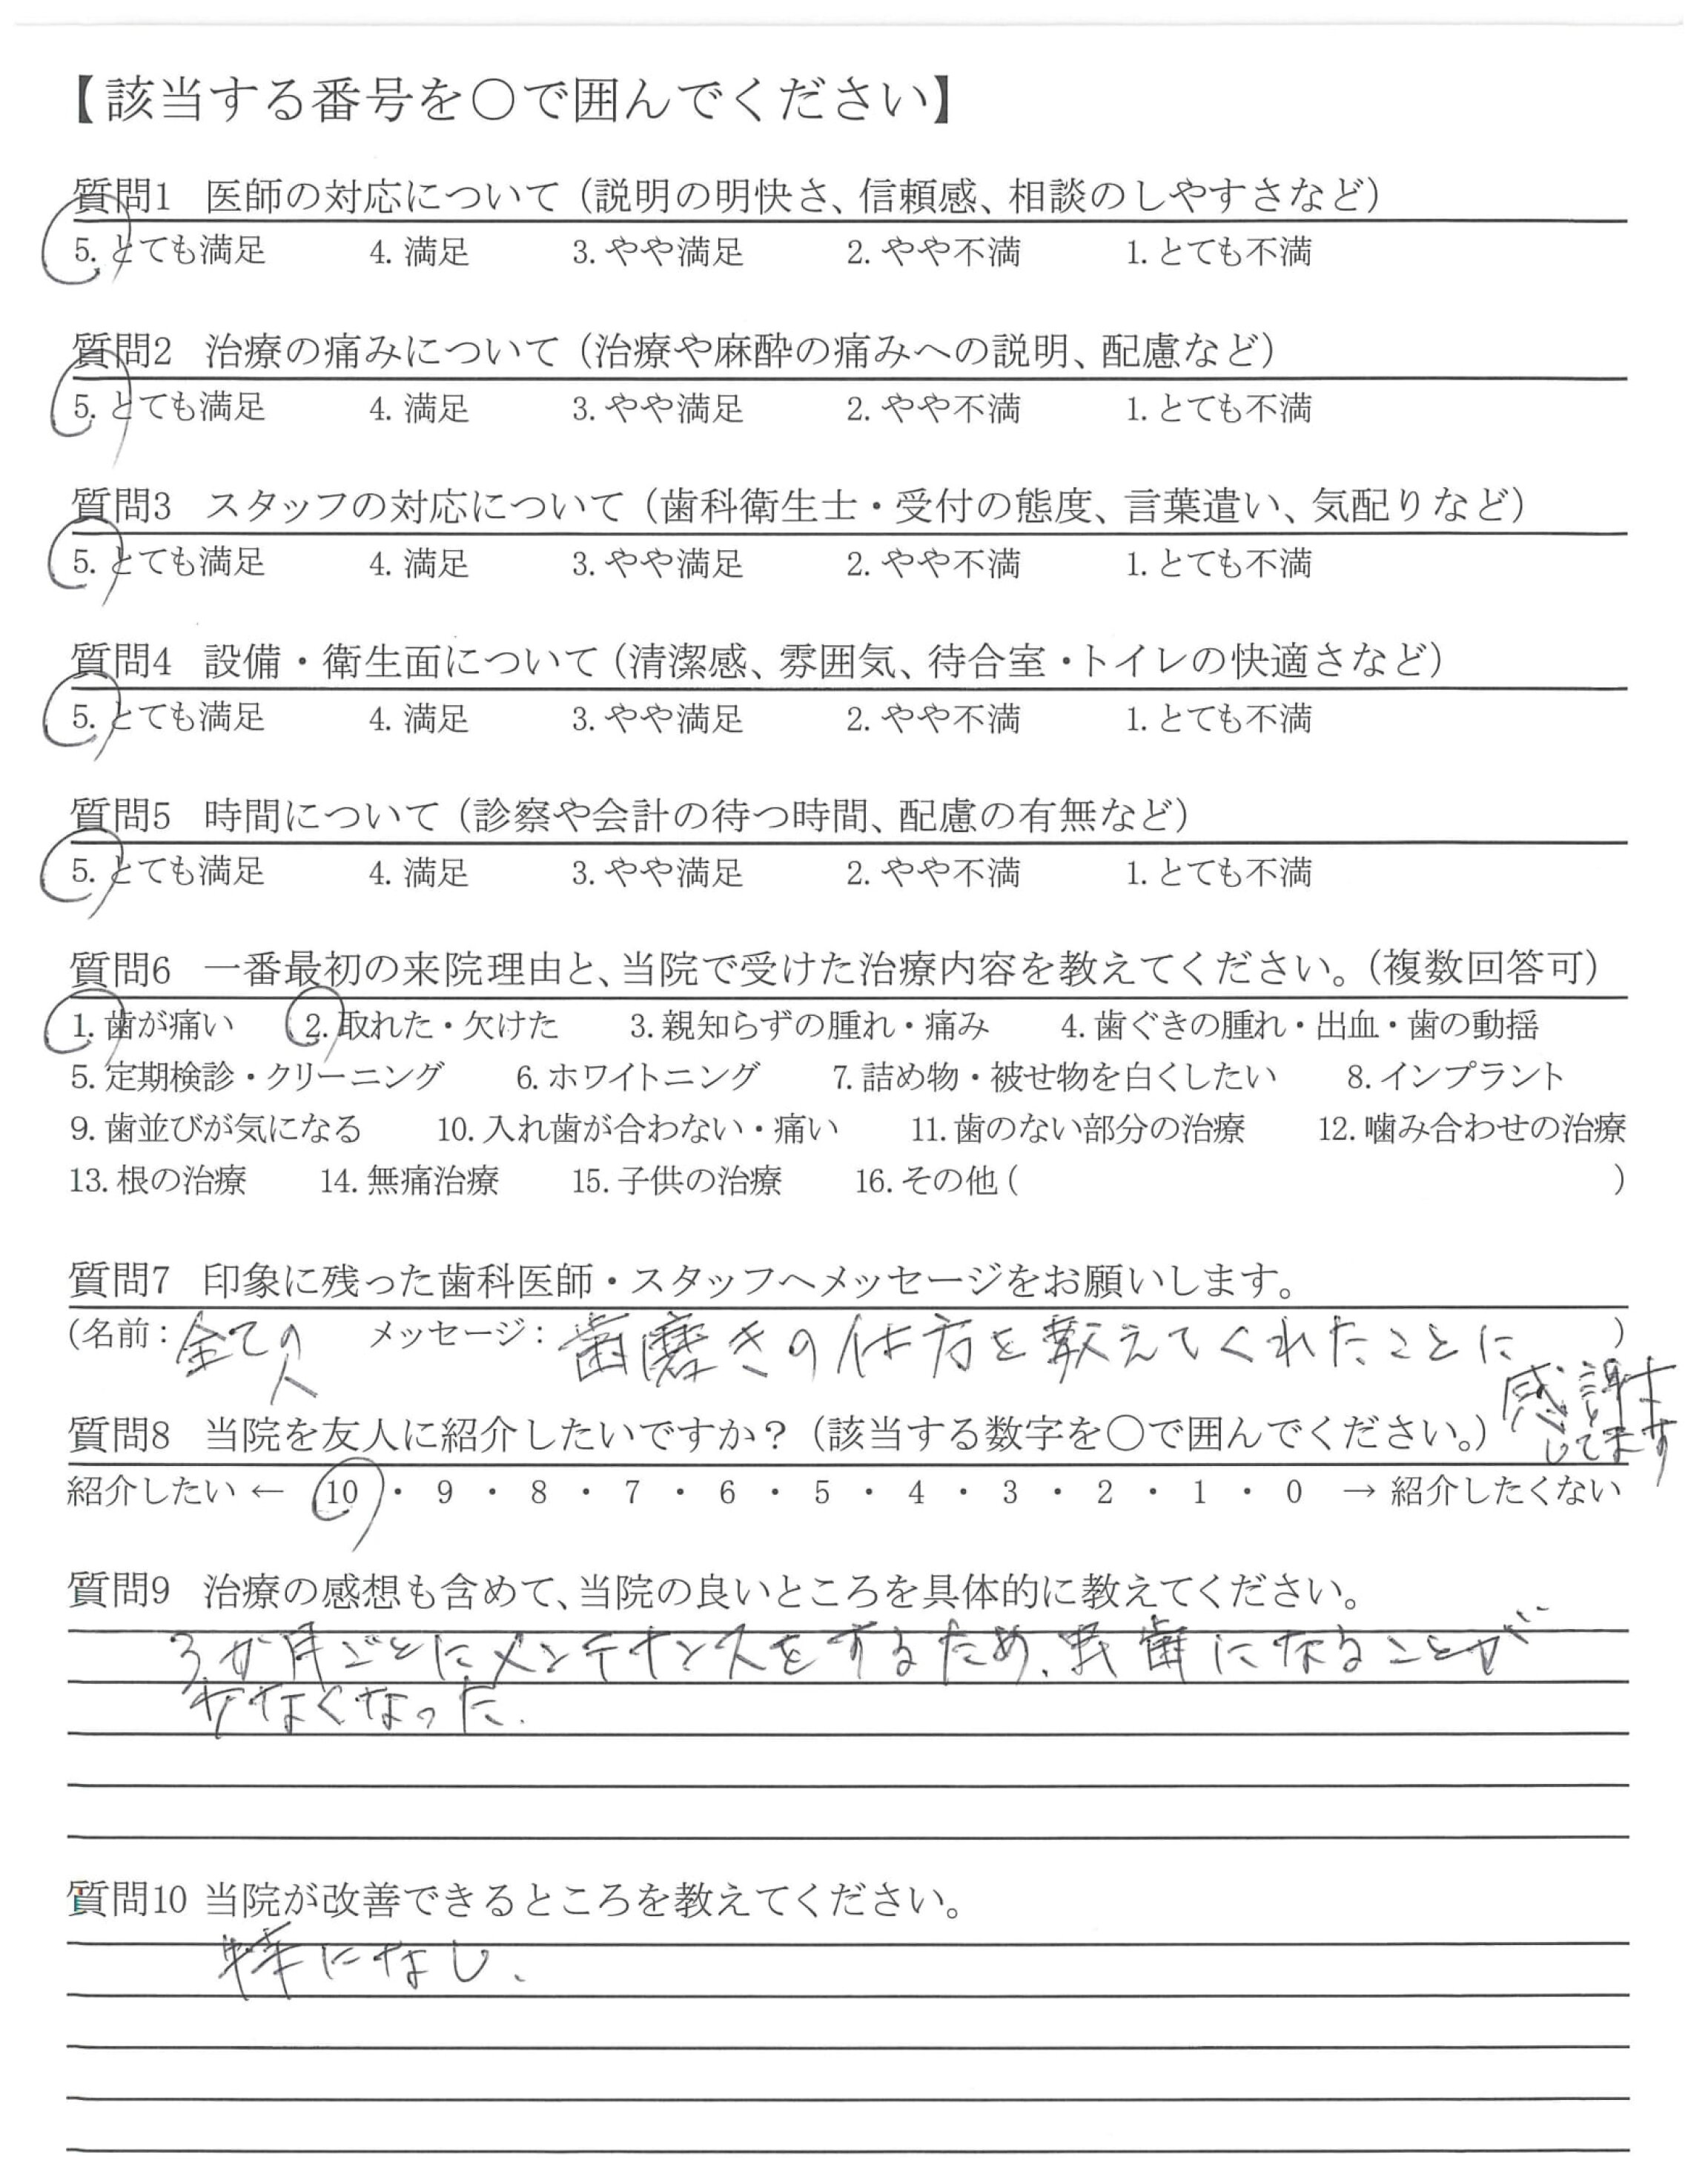 【該当する番号を〇で囲んでください】
質問1 医師の対応について（説明の明快さ、信頼感、相談のしやすさなど）
5. とても満足 4. 満足 3. やや満足 2. やや不満 1. とても不満
質問2 治療の痛みについて（治療や麻酔の痛みへの説明、配慮など）
5. とても満足 4. 満足 3. やや満足 2. やや不満 1. とても不満
質問3 スタッフの対応について（歯科衛生士・受付の態度、言葉遣い、気配りなど）
5. とても満足 4. 満足 3. やや満足 2. やや不満 1. とても不満
質問4 設備・衛生面について（清潔感、雰囲気、待合室・トイレの快適さなど）
5. とても満足 4. 満足 3. やや満足 2. やや不満 1. とても不満
質問5 時間について（診察や会計の待つ時間、配慮の有無など）
5. とても満足 4. 満足 3. やや満足 2. やや不満 1. とても不満
質問6 一番最初の来院理由と、当院で受けた治療内容を教えてください。（複数回答可）
1. 歯が痛い 2. 取れた・欠けた 3. 親知らずの腫れ・痛み 4. 歯ぐきの腫れ・出血・歯の動揺
5. 定期検診・クリーニング 6. ホワイトニング 7. 詰め物・被せ物を白くしたい 8. インプラント
9. 歯並びが気になる 10. 入れ歯が合わない・痛い 11. 歯のない部分の治療 12. 噛み合わせの治療
13. 根の治療 14. 無痛治療 15. 子供の治療 16. その他（ ）
質問7 印象に残った歯科医師・スタッフへメッセージをお願いします。
（名前：全ての人 メッセージ：歯磨きの仕方を教えてくれたことに ）
感謝
してます
質問8 当院を友人に紹介したいですか？（該当する数字を〇で囲んでください。）
紹介したい ← 10 ・ 9 ・ 8 ・ 7 ・ 6 ・ 5 ・ 4 ・ 3 ・ 2 ・ 1 ・ 0 → 紹介したくない
質問9 治療の感想も含めて、当院の良いところを具体的に教えてください。
3か月ごとにメンテナンスをするため、虫歯になることが
少なくなった.
質問10 当院が改善できるところを教えてください。
特になし.